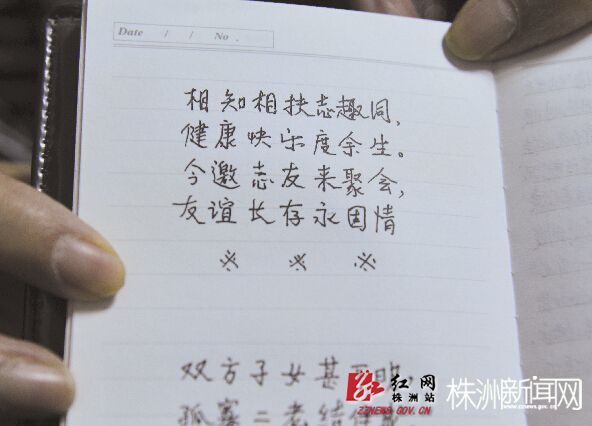 Date / / No .
相知相扶志趣同,
健康快乐度余生。
今邀志友来聚会,
友谊长存永固情
※ ※ ※
双方子女甚
孤寡二老结
红网
株洲站
ZZNEWS.GOV.CN
株洲新闻网
www.zznews.gov.cn